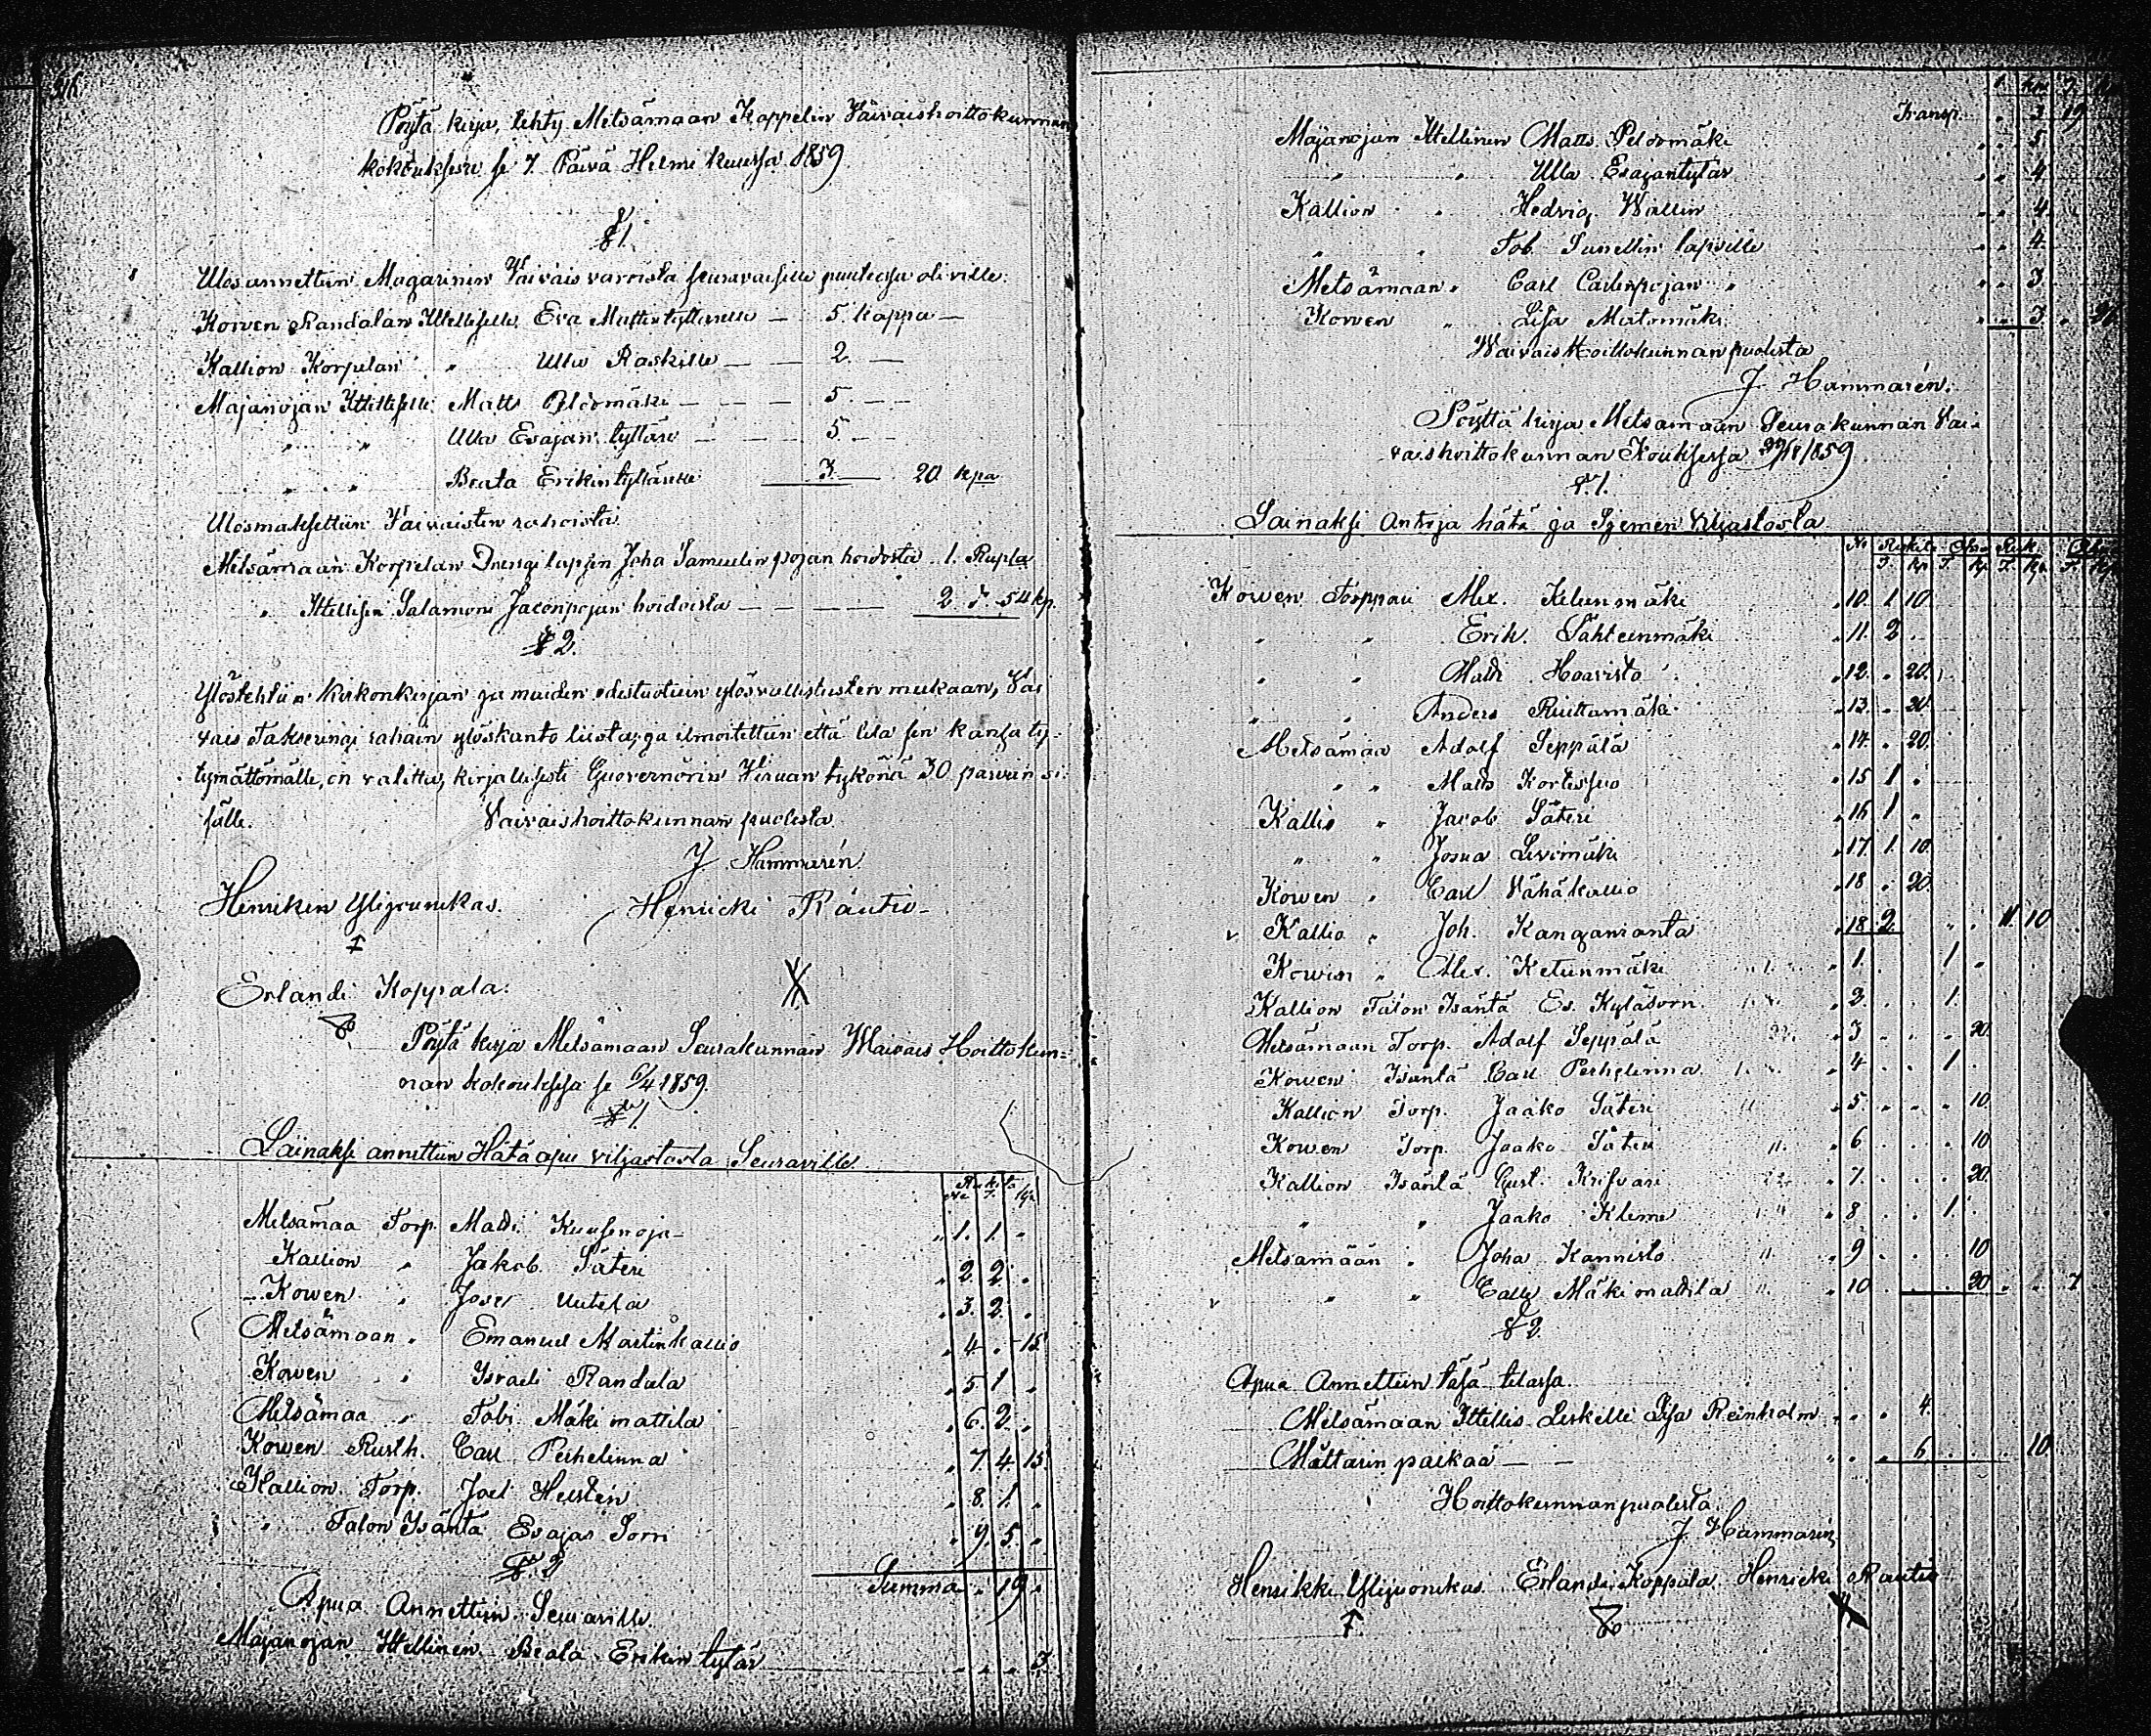 Pöytä kirja, tehty Metsämaan Kappelin Vaivaishoittokunnan
kokouksesa se 7. Päivä Helmi kuussa 1859.
§ 1.
Ulosannettiin Magasinin Vaivais varoista seuravaisille puuteesa oleville.
Kowen Randalan Ittellisselle Eva Mattintyttarelle — 5. kappa —
Kallion Korpelan " Ulla Raskille — — 2. —
Majanojan Ittellisselle Matts Peldomäki — — — 5. — —
" " Ulla Esajan tyttäre — — — 5. — —
" " Beata Erikintyttärelle 3. — 20 kpa
Ulosmaksettiin Vaivaisten rahoista
Metsämaan Korpelan Drengi lapsen Joha Samuelin pojan hoidosta .. 1. Rupla
" Ittellisen Salamon Jaconpojan hoidoista — — — — 2. " 54 kp.
§ 2.
Ylöstehtiin Kirkonkirjan ja muiden edestuotuin ylösvallistusten mukaan, Vai
vais Takseringi rahain ylöskanto liista, ja ilmoitettiin että tila sen kansa ty-
tymättömälle, on valittaa, kirjallisesti Guvernörin Wiruan tykönä 30 päivän si-
sälle. Vaivaishoittokunnan puolesta.
J. Hammarén
Henriken Ylijounikas. Henricki Rautio
Erlandi Koppala.
Pöytä kirja Metsämaan Seurakunnan Waivais Hoittokun=
nan kokouksesa se 6/4 1859.
§ 1
Lainaksi annettiin Hätä apu viljastosta Seuraville.
No Rukita T. kp.
Metsämaa Torp. Matti Kuusenoja " 1. 1. "
Kallion " Jakob Säteri " 2. 2. "
Kowen " Josef Uutela " 3. 2. "
Metsämaan " Emanuel Martinkallio " 4 . 15
Kowen " Israeli Randala " 5 1 "
Metsämaa " Tobi. Mäki mattila " 6. 2. "
Kowen Rusth. Carl Perhelinna " 7. 4. 15.
Kallion Torp. Joel Hellsten " 8. 1. "
" Talon Isäntä Esajas Sorri " 9. 5. "
§ 2 Summa . 19 .
Apua Annettiin Seuraville.
Majanojan Ittellinen Beata Erikin tytär " " " 3.
Transp. . 3 19
Majanojan Ittellinen Matts Peldomäki " . 5.
" " Ulla Esajantytär " " 4
Kallion " Hedvig Wallin " " 4.
" " Tob. Sunellin lapsille " " 4.
Metsämaan " Carl Carlinpojan " " " 3.
Kowen " Lisa Matomäki " " 3. " 26.
Waivais Hoittokunnan puolesta
J. Hammarén.
Pöyttä kirja Metsamaan Seurakunnan Vai-
vaishoittokunnan Kouksessa 1859
§. 1.
Lainaksi Antoja hätä ja Siemen Viljastosta
No Rukita T. kp Ohra T. kp Ruk. T. kp.
Kowen Torppari Alex. Ketunmäki " 10. 1. 10
" " Erik. Lähteenmäki " 11. 2 .
" " Matti Haavisto " 12. . 20.
" " Anders Riuttamäki " 13. . 20
Metsämaa Adolf Seppälä " 14. . 20.
" " Matts Kortessuo " 15 1 .
Kallio " Jacob Säteri " 16 1 "
" " Josua Levomäki " 17 1. 10.
Kowen " Carl Vähäkallio " 18 . 20.
Kallio " Joh. Kanganranta " 18 2. . . 11. 10
Kowin " Alex. Ketunmäki " 1. 1 .
Kallion Talon Isäntä Es. Kyläsorri " 2. . . 1.
Metsämaan Torp. Adolf Seppälä " 3 . . . 20.
Kowen Isäntä Carl Perhelinna " 4 . . 1
Kallion Torp. Jaako Säteri " 5. . . . 10.
Kowen Torp. Jaako Säteri " 6 . . . 10
Kallion Isäntä Gust. " 7. . . . 20.
" " Jaako Klemi " 8 . . 1.
Metsämään " Joha Kannisto " 9 . . . 10
" " Calle Mäki mattila " 10 . . . 20 . . 7
§ 2
Apua Annettiin täsä tilassa.
Metsämaan Ittellis. Leskelle Lisa Reinholm . . . 4.
Mättarin palkaa — — " . . 6. . . . 10
Hoittokunnan puolesta.
J. Hammarén
Henrikki Ylijounikas. Erlandi Koppala Henricki Rautio